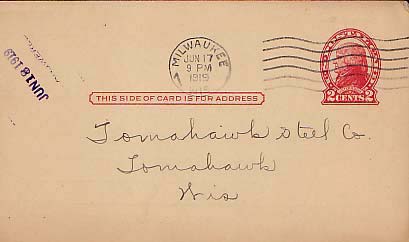 MILWAUKEE
JUN 17
9 PM
1919
WIS.
JUN 18 1919
2 CENTS 2
THIS SIDE OF CARD IS FOR ADDRESS
Tomahawk Steel Co.
Tomahawk
Wis